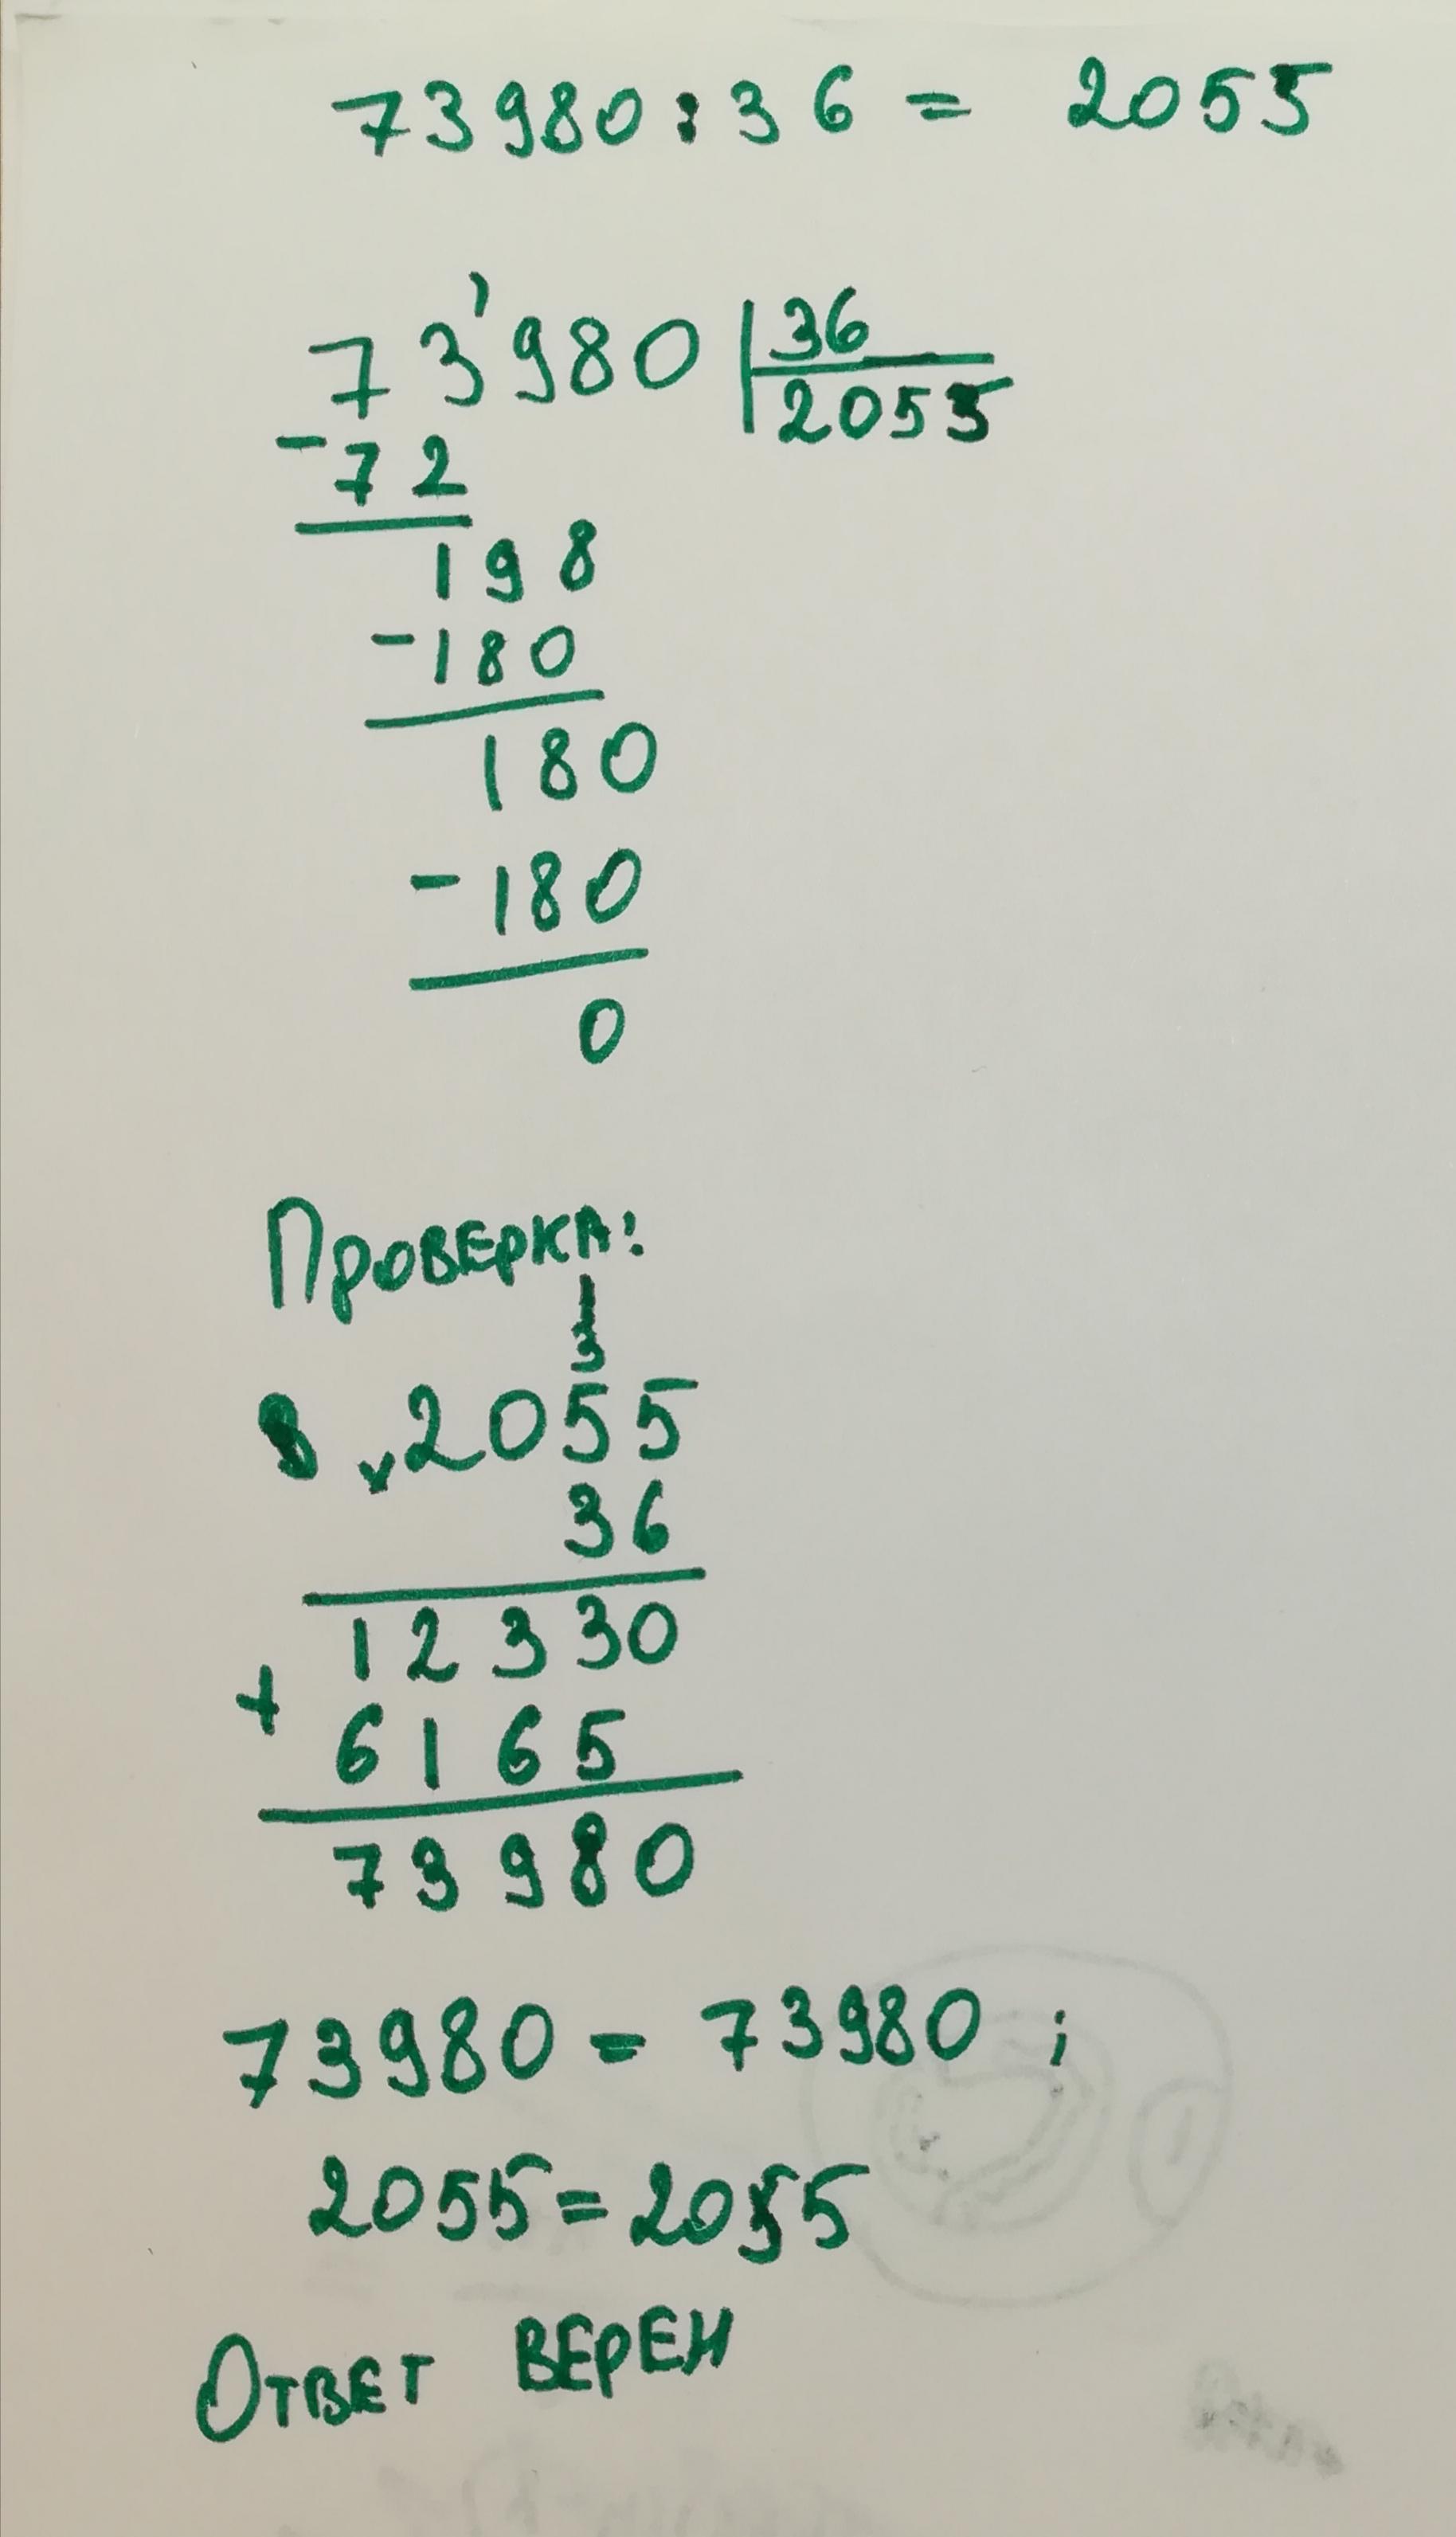 73980:36 = 2055
73'980 36
2055
-72
198
-180
180
-180
0
Проверка:
3
×2055
36
12330
+
6165
73980
73980 = 73980;
2055=2055
Ответ верен